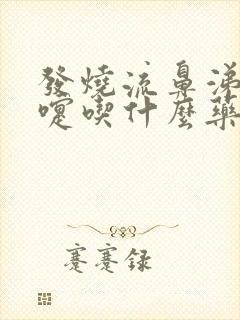 發燒流鼻涕
嚏喫什麼藥
蹇蹇録